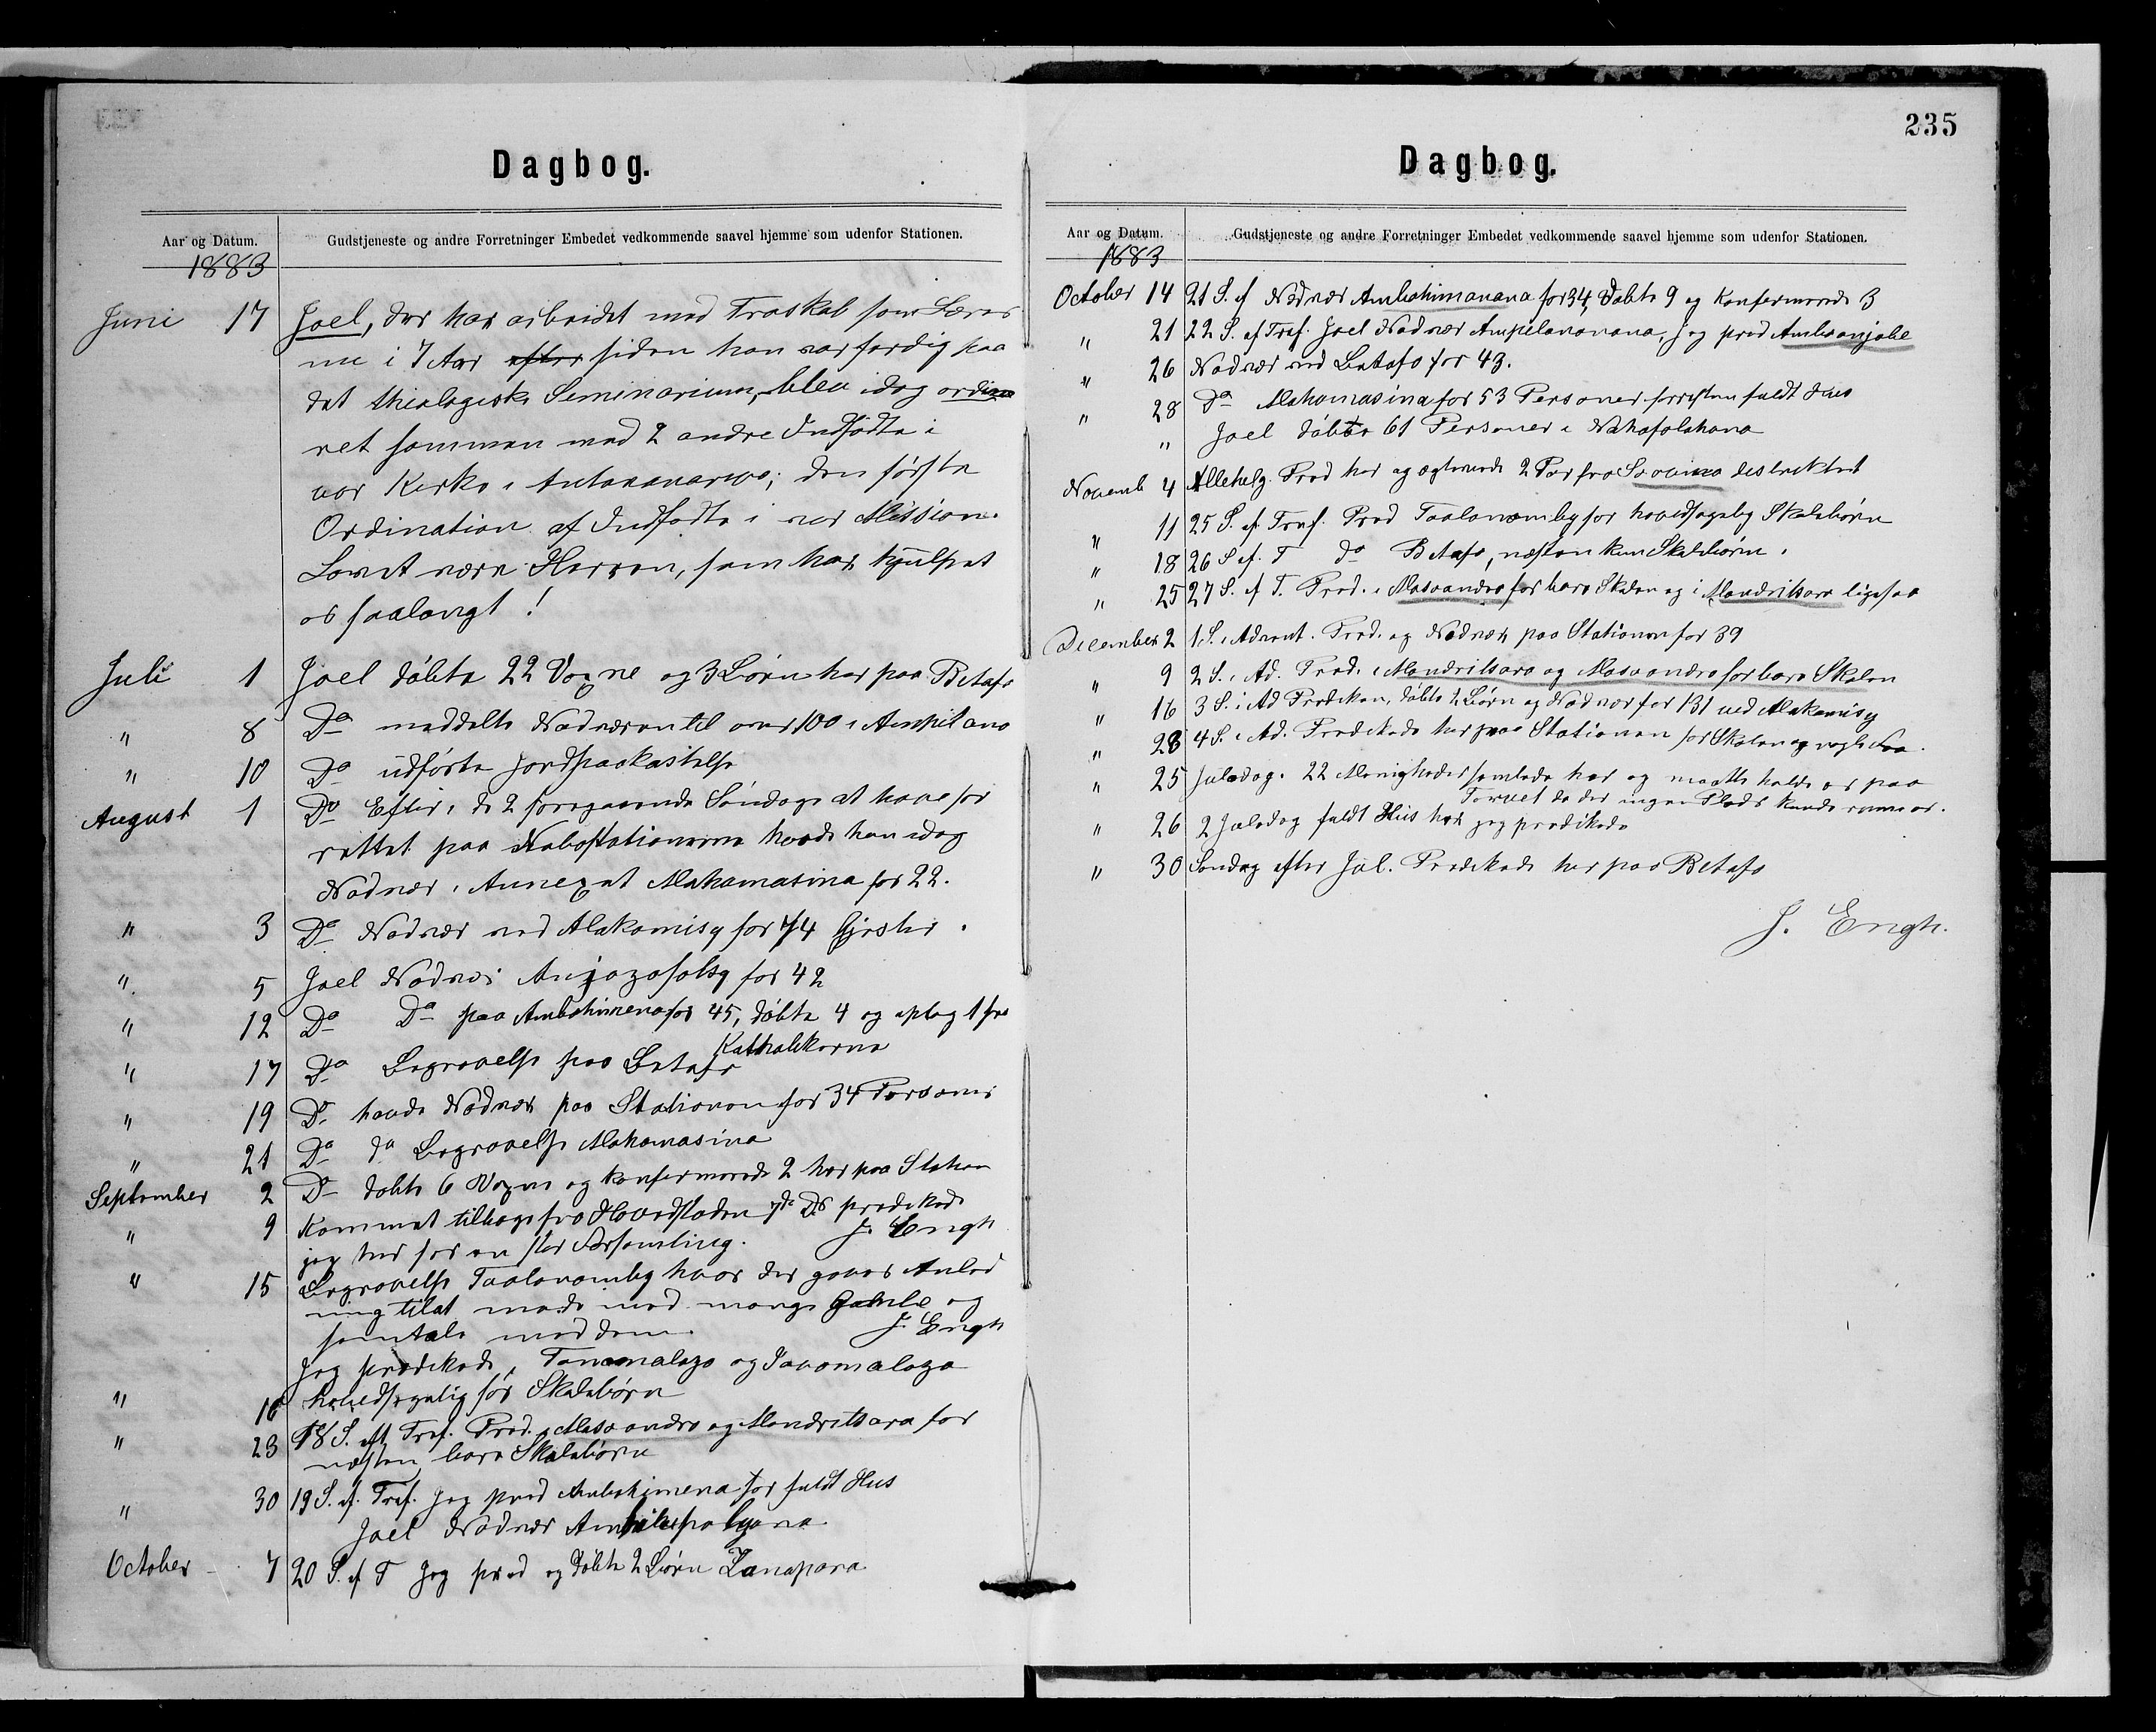 Dagbog.
Aar og Datum. Gudstjeneste og andre Forretninger Embedet vedkommende saavel hjemme som udenfor Stationen.
1883
Juni 17 Joel, der har arbeidet med Troskab som Lærer
nu i 7 Aar efter siden han var færdig paa
det theologiske Seminarium, blev idag ordine
ret sammen med 2 andre Indfødte i
vor Kirke i Antananarivo; den første
Ordination af Indfødte i vor Mission.
Lovet være Herren, som har hjulpet
os saalangt!
Juli 1 Joel døbte 22 Voxne og 3 Børn her paa Betafo
" 8 Do meddelte Nadveren til over 100 i Ampitana
" 10 Do udførte Jordpaakastelse
August 1 Do Efter i de 2 foregaaende Søndage at have for
rettet paa Nabostationerne havde han idag
Nadver i Annexet Mahamasina for 22.
" 3 Do Nadver ved Alakamisy for 74 Gjester.
" 5 Joel Nadver Anjazafotsy for 42
" 12 Do Do paa Ambohimena for 45, døbte 4 og optog 1 fra
Katholikerne
" 17 Do Begravelse paa Betafo
" 19 Do havde Nadver paa Stationen for 34 Personer
" 21 Do do Begravelse Mahamasina
September 2 Do døbte 6 Voxne og konfirmerede 2 her paa Station
" 9 Kommet tilbage fra Hovedstaden 7de Ds prædikede
jeg her for en stor Forsamling. J. Engh
" 15 Begravelse Taolanamby hvor der gaves Anled
ning til at møde med mange Gamle og
samtale med dem. J. Engh
Jeg prædikede i Tanimalaza og Savamalaza
" 16 hovedsagelig for Skolebørn
" 23 18 S. ef Tref. Præd. i Masoandro og Mandritsara for
næsten bare Skolebørn
" 30 19 S. ef. Tref. Jeg præd Ambohimena for fuldt Hus
Joel Nadver
October 7 20 S. ef T Jeg præd og døbte 2 Børn
235
Dagbog.
Aar og Datum. Gudstjeneste og andre Forretninger Embedet vedkommende saavel hjemme som udenfor Stationen.
1883
October 14 21 S. ef Nadver Ambohimanana for 34, døbte 9 og Konfirmerede 3
" 21 22 S. ef Tref. Joel Nadver Ampelanonana, Jeg præd Amboanjobe
" 26 Nadver ved Betafo for 43.
" 28 Do Mahamasina for 53 Personer forresten fuldt Hus
" Joel døbte 61 Personer i
Novemb 4 Allehelg. Præd her og ægteviede 2 Par fra Soavina destriktet
" 11 25 S. ef Tref. Præd Taolanamby for hovedsagelig Skolebørn
" 18 26 S ef. T do Betafo, næsten kun Skolebørn.
" 25 27 S. ef T. Præd. i Masoandro for bare Skolen og i Mandritsara ligesaa
December 2 1 S. i Advent. Præd. og Nadver paa Stationen for 39
" 9 2 S. i Ad. Præd. i Mandritsara og Masoandro for bare Skolen
" 16 3 S. i Ad Prædiken, døbte 2 Børn og Nadver for 131 ved Alakamisy
" 23 4 S. i Ad. Prædikede her paa Stationen for Skolen og nogle Faa.
" 25 Juledag. 22 Menigheder samlede her og maatte holde os paa
Torvet da der ingen Plads kunde rumme os.
" 26 2 Juledag fuldt Hus her jeg prædikede
" 30 Søndag efter Jul. Prædikede her paa Betafo
J. Engh.